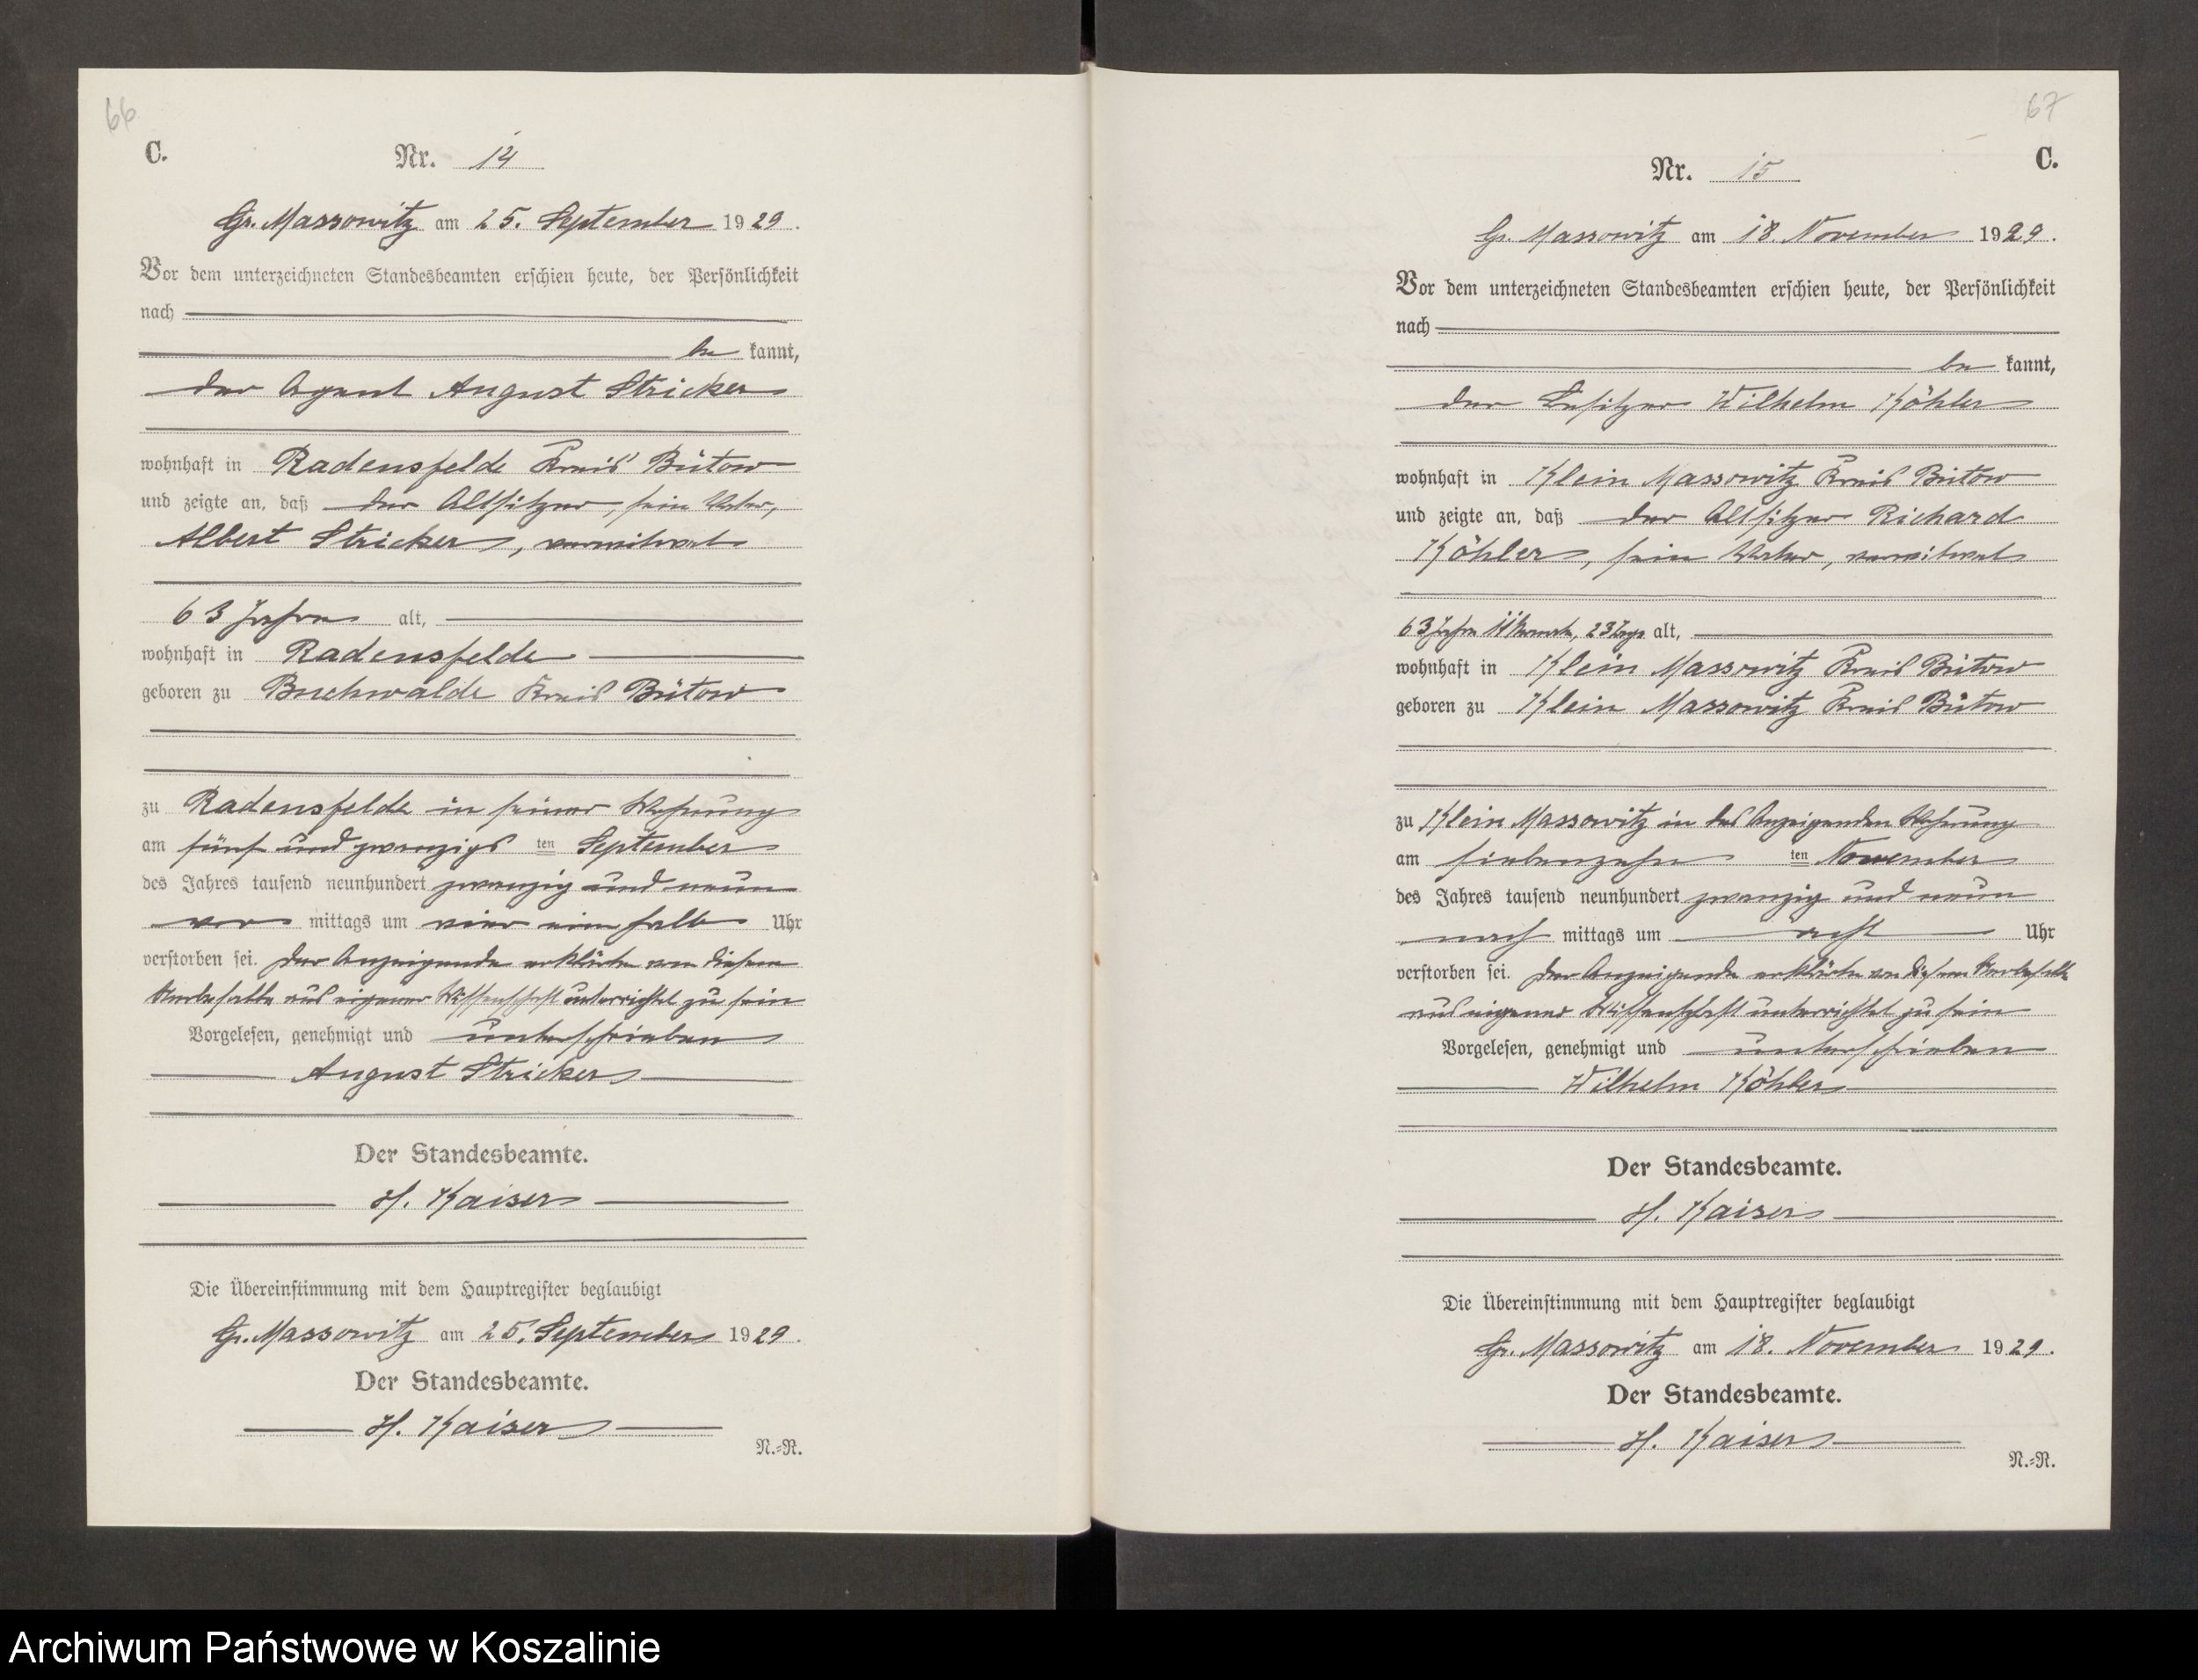 66
C.
Nr. 14
Gr. Massowitz am 25. September 1929.
Vor dem unterzeichneten Standesbeamten erschien heute, der Persönlichkeit
nach
be kannt,
der Agent August Stricker
wohnhaft in Radensfelde Kreis Bütow
und zeigte an, daß der Altsitzer, sein Vater,
Albert Stricker, verwitwet
63 Jahre alt,
wohnhaft in Radensfelde
geboren zu Buchwalde Kreis Bütow
zu Radensfelde in seiner Wohnung
am fünf und zwanzigs ten September
des Jahres tausend neunhundert zwanzig und neun
vor mittags um vier ein halb Uhr
verstorben sei. Der Anzeigende erklärte von diesem
Sterbefalle aus eigener Wissenschaft unterrichtet zu sein
Vorgelesen, genehmigt und unterschrieben
August Stricker
Der Standesbeamte.
H. Kaiser
Die Übereinstimmung mit dem Hauptregister beglaubigt
Gr. Massowitz am 25. September 1929.
Der Standesbeamte.
H. Kaiser
N.-R.
67
C.
Nr. 15
Gr. Massowitz am 18. November 1929.
Vor dem unterzeichneten Standesbeamten erschien heute, der Persönlichkeit
nach
be kannt,
der Besitzer Wilhelm Köhler
wohnhaft in Klein Massowitz Kreis Bütow
und zeigte an, daß der Altsitzer Richard
Köhler, sein Vater, verwitwet
63 Jahre 11 Monate, 23 Tage alt,
wohnhaft in Klein Massowitz Kreis Bütow
geboren zu Klein Massowitz Kreis Bütow
zu Klein Massowitz in des Anzeigenden Wohnung
am siebenzehn ten November
des Jahres tausend neunhundert zwanzig und neun
nach mittags um acht Uhr
verstorben sei. Der Anzeigende erklärte von diesem Sterbefalle
aus eigener Wissenschaft unterrichtet zu sein
Vorgelesen, genehmigt und unterschrieben
Wilhelm Köhler
Der Standesbeamte.
H. Kaiser
Die Übereinstimmung mit dem Hauptregister beglaubigt
Gr. Massowitz am 18. November 1929.
Der Standesbeamte.
H. Kaiser
N.-R.
Archiwum Państwowe w Koszalinie